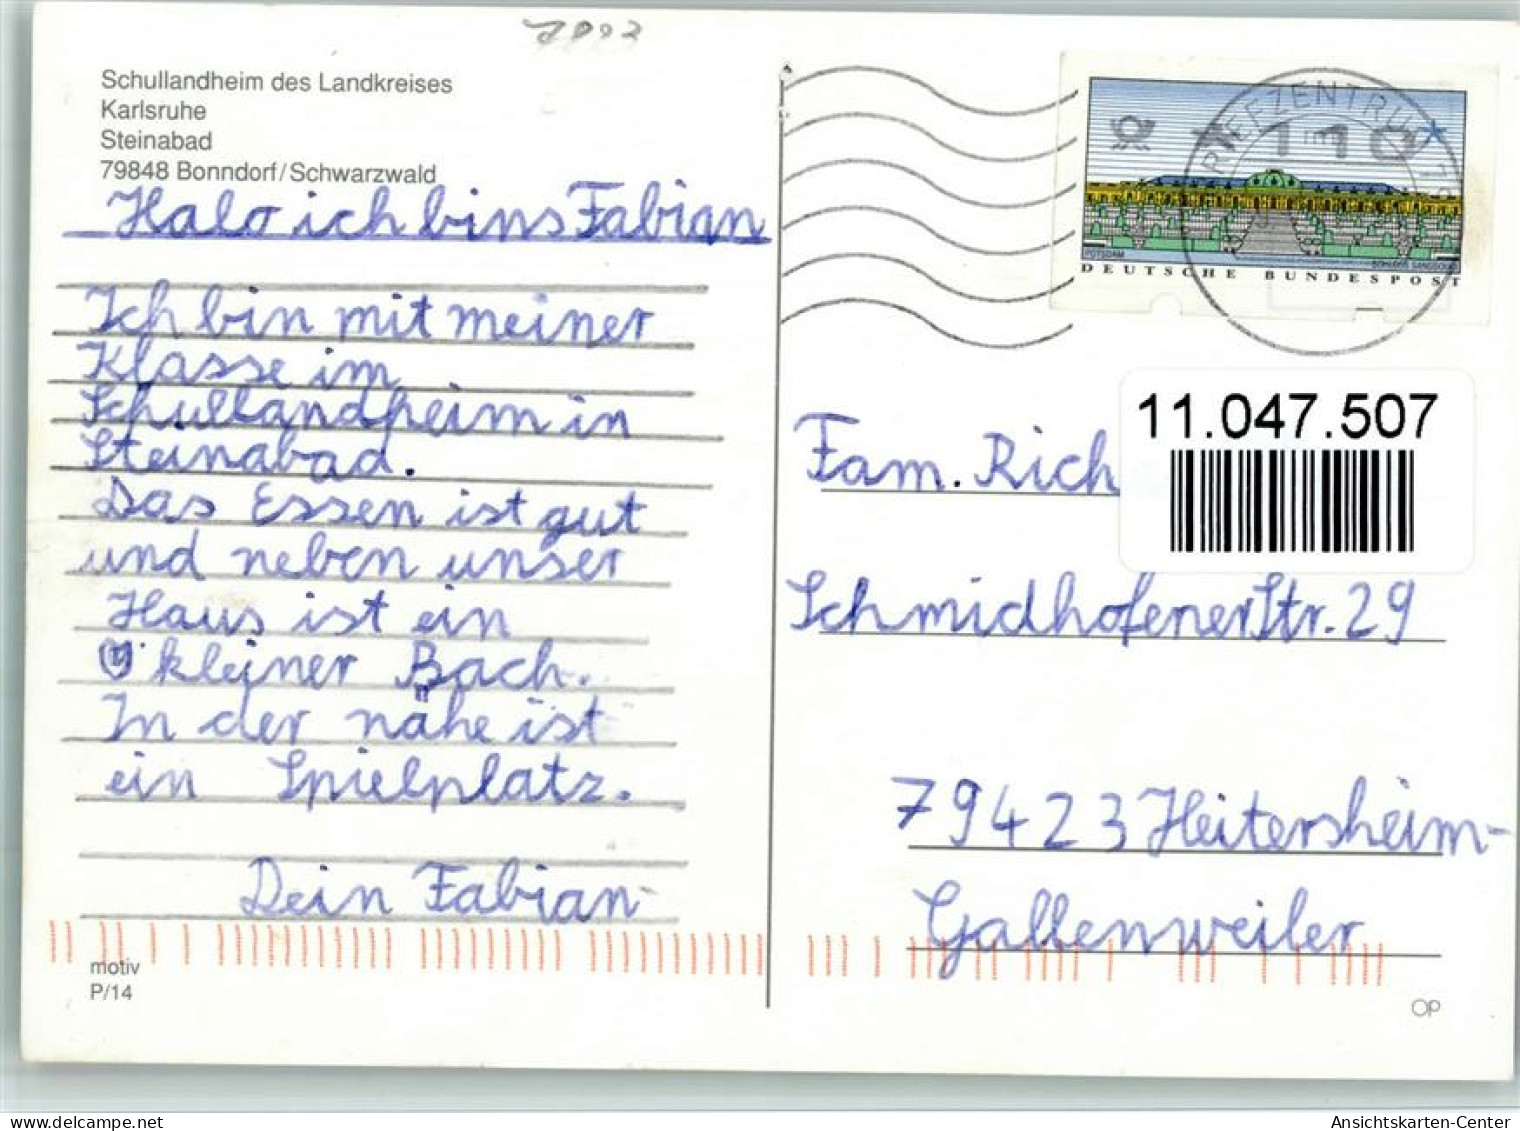 Schullandheim des Landkreises
Karlsruhe
Steinabad
79848 Bonndorf/Schwarzwald
Halo ich bins Fabian
Ich bin mit meiner
Klasse im
Schullandheim in
Steinabad.
Das Essen ist gut
und neben unser
Haus ist ein
kleiner Bach.
In der nähe ist
ein Spielplatz.
Dein Fabian
motiv
P/14
BRIEFZENTRUM 79
110
POTSDAM
SCHLOSS SANSSOUCI
DEUTSCHE BUNDESPOST
11.047.507
Fam. Rich
Schmidhofener Str. 29
79423 Heitersheim-
Gallenweiler
OP
delcampe.net
Ansichtskarten-Center